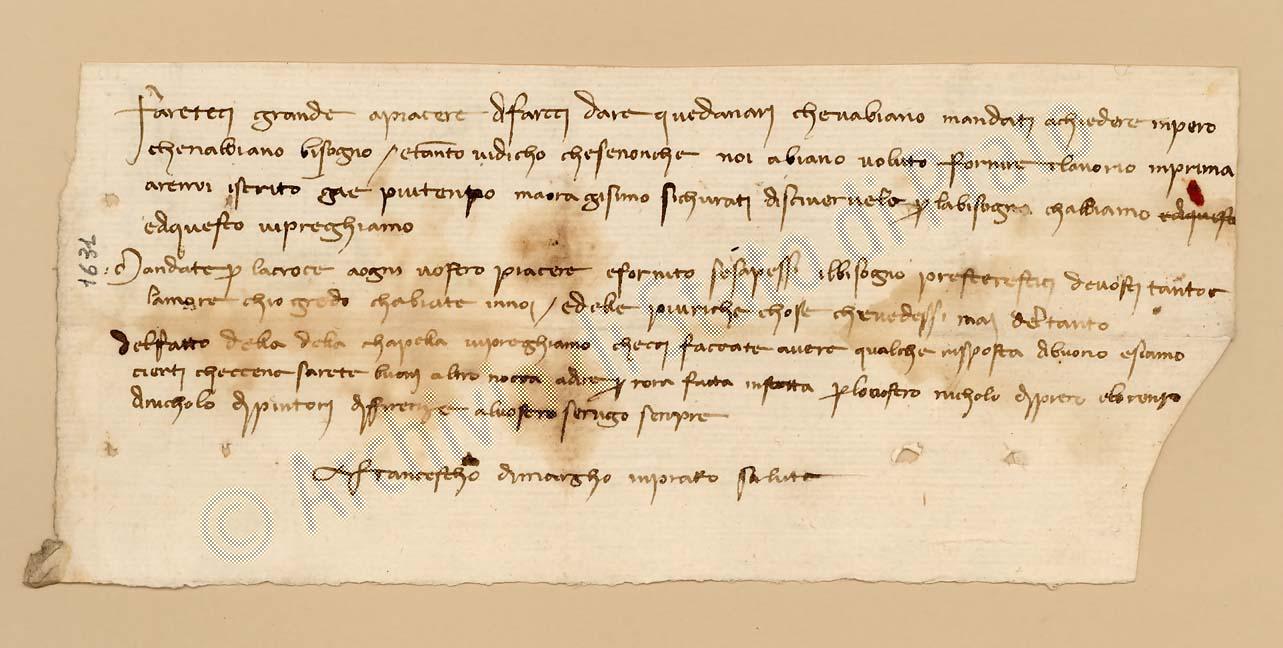 Fareteci grande apiacere difarcci dare quedanari chenabiano mandati achiedere inpero
chenabbiano bisogno / etanto vidicho chesenonche noi abiano voluto fornire ilavorio inprima
aremvi iscrito gie piutenpo maora gisimo sichurati discivervelo per labisogna chabbiamo edquesto
edquesto vipreghiamo
Mandate per lacroce aogni vostro piacere efornito sesapessi ilbisogno presterestici devostri tanto e
lamore chio gredo chabiate innoi / edelle piuriche chose chevedessi mai di tanto
delfatto della della chapella vipreghiamo checci facciate avere qualche rispossta dbuono esiamo
cierti checcene sarete buoni altro nocca adire per ora fatta infretta per lovostro nicholo dipiero elorenzo
dinicholo dipintori diffirenze alvostro servigo senpre
A francescho dimargho inprato salute
1631
© Archivio di Stato di Prato